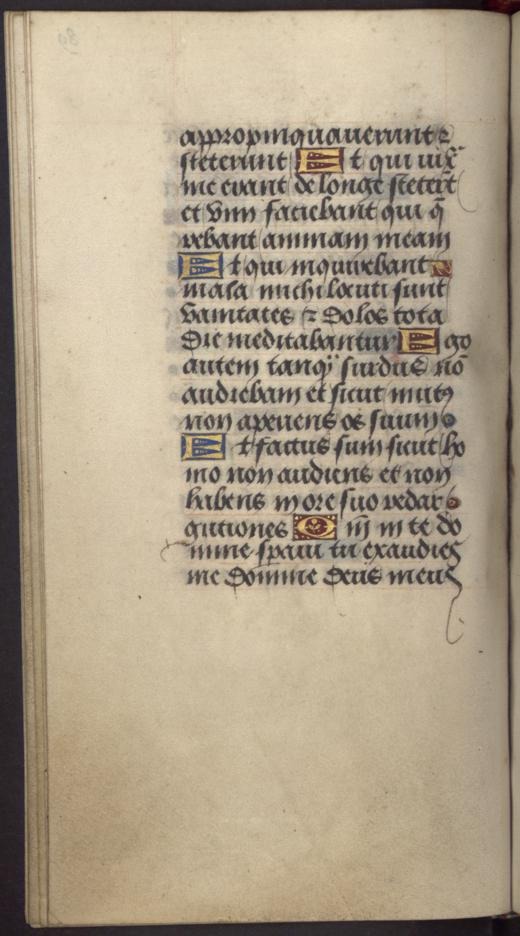 appropinquauerunt ⁊
steterunt Et qui iux̄
me erant de longe steterūt
et vim faciebant qui q̄
rebant animam meam
Et qui inquirebant
mala michi locuti sunt
vanitates ⁊ dolos tota
die meditabantur Ego
autem tanq̄ surdus nō
audiebam et sicut mutꝯ
non aperiens os suum
Et factus sum sicut ho
mo non audiens et non
habens in ore suo redar
gutiones Qm̄ in te do
mine speraui tu exaudies
me domine deus meus